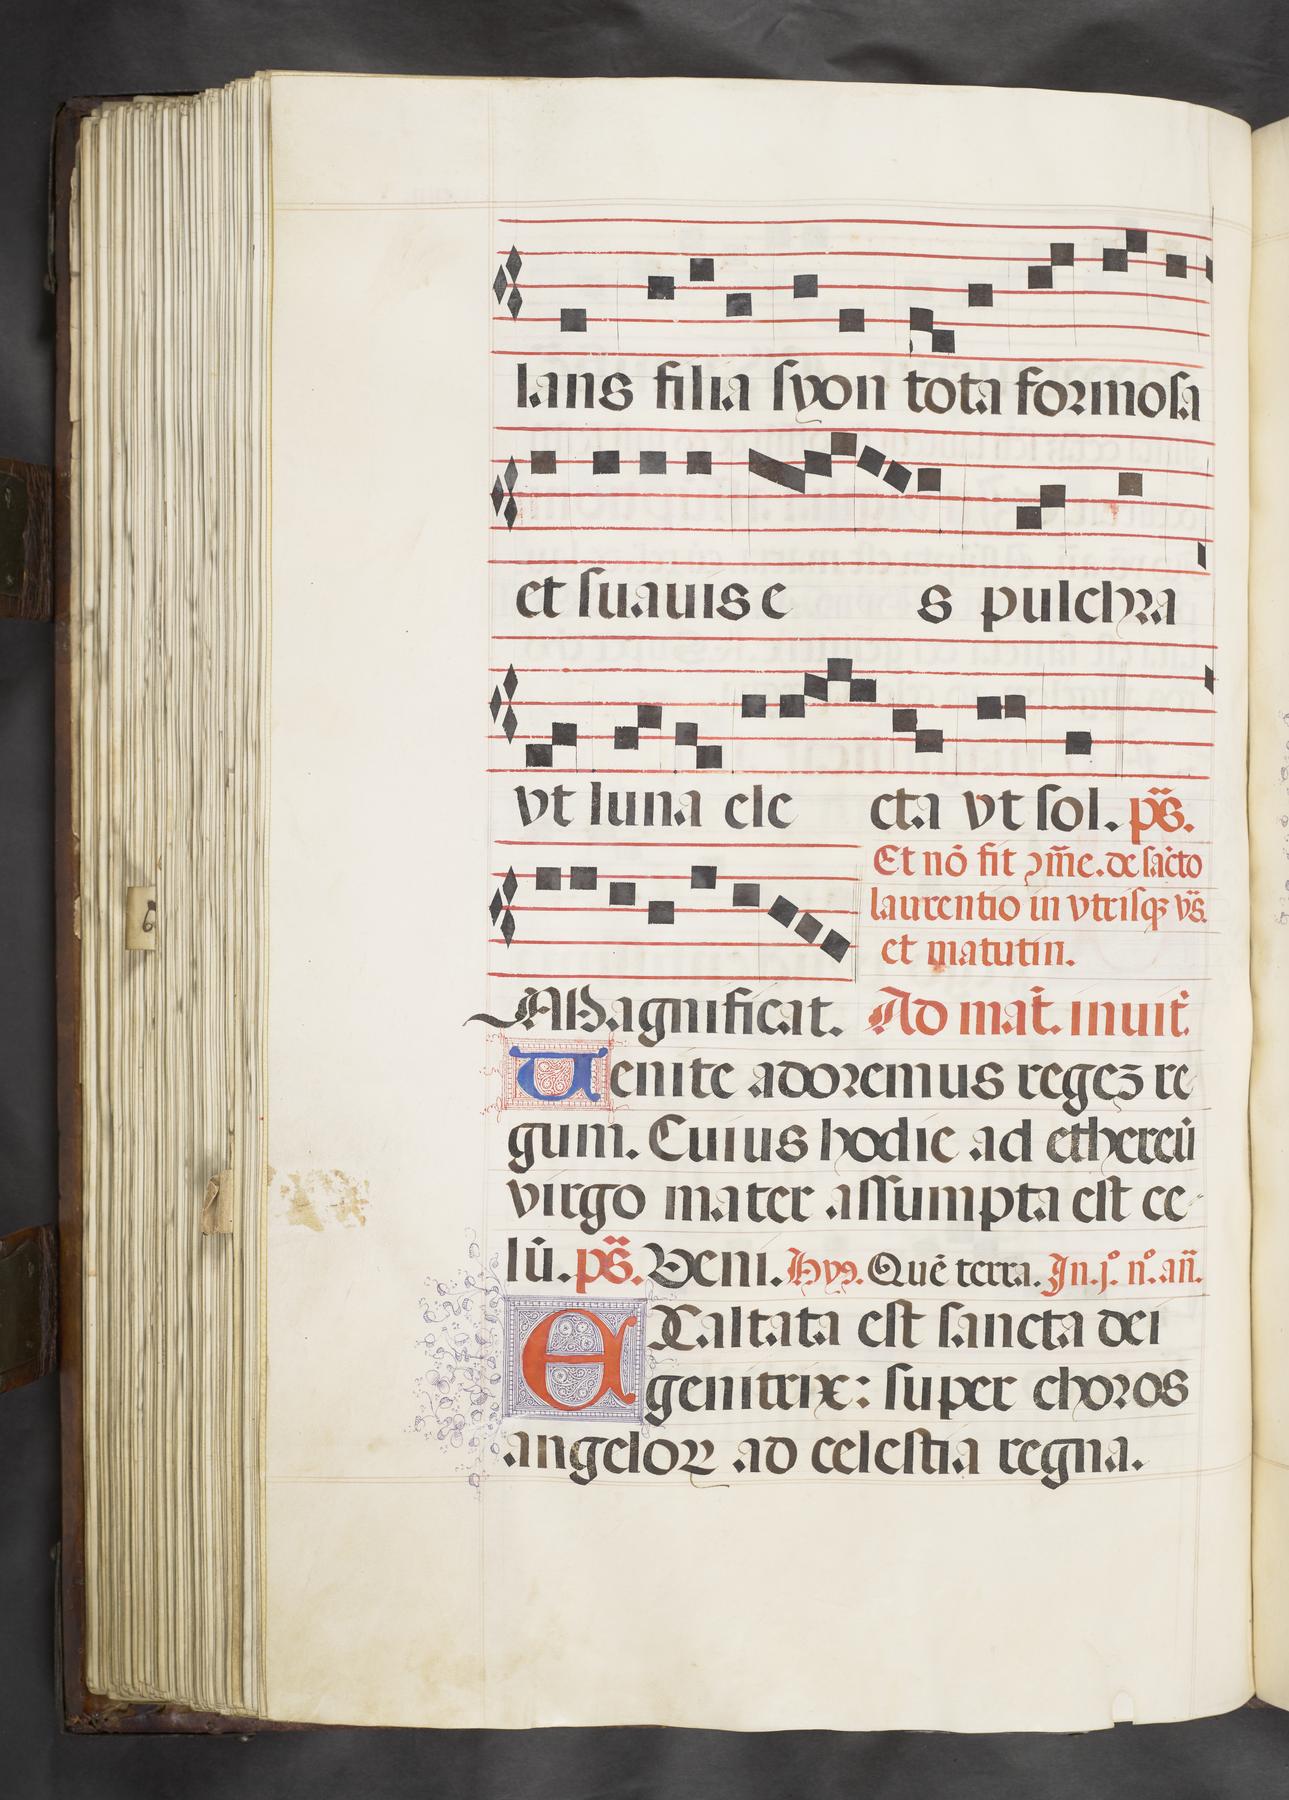 lans filia syon tota formosa
et suauis e s pulchra
vt luna ele cta vt sol. ps̄.
Et nō fit ɔm̄e. de sācto
laurentio in vtrisqꝫ vs̄.
et matutin.
Magnificat. Ad mat̄. inuit̄.
Uenite adoremus regeꝫ re
gum. Cuius hodie ad ethereū
virgo mater assumpta est ce-
lū. ps̄. Veni. Hyꝯ. Quē terra. In .j.º n.º an̄.
EXaltata est sancta dei
genitrix: super choros
angeloꝝ ad celestia regna.
6